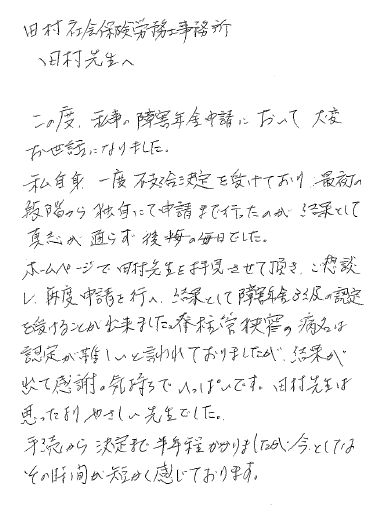 田村社会保険労務士事務所
田村先生へ
この度、私事の障害年金申請において 大変
お世話になりました。
私自身、一度不支給決定を受けており、最初の
段階から独自にて申請まで行ったのが 結果として
真意が通らず後悔の毎日でした。
ホームページで田村先生を拝見させて頂き、ご相談
し、再度申請を行い、結果として障害年金3級の認定
を受けることが出来ました。脊柱管狭窄の病名は
認定が難しいと言われておりましたが、結果が
出て感謝の気持ちでいっぱいです。田村先生は
思ったよりやさしい先生でした。
手続から決定まで半年程かかりましたが、今としては
その時間が短かく感じております。